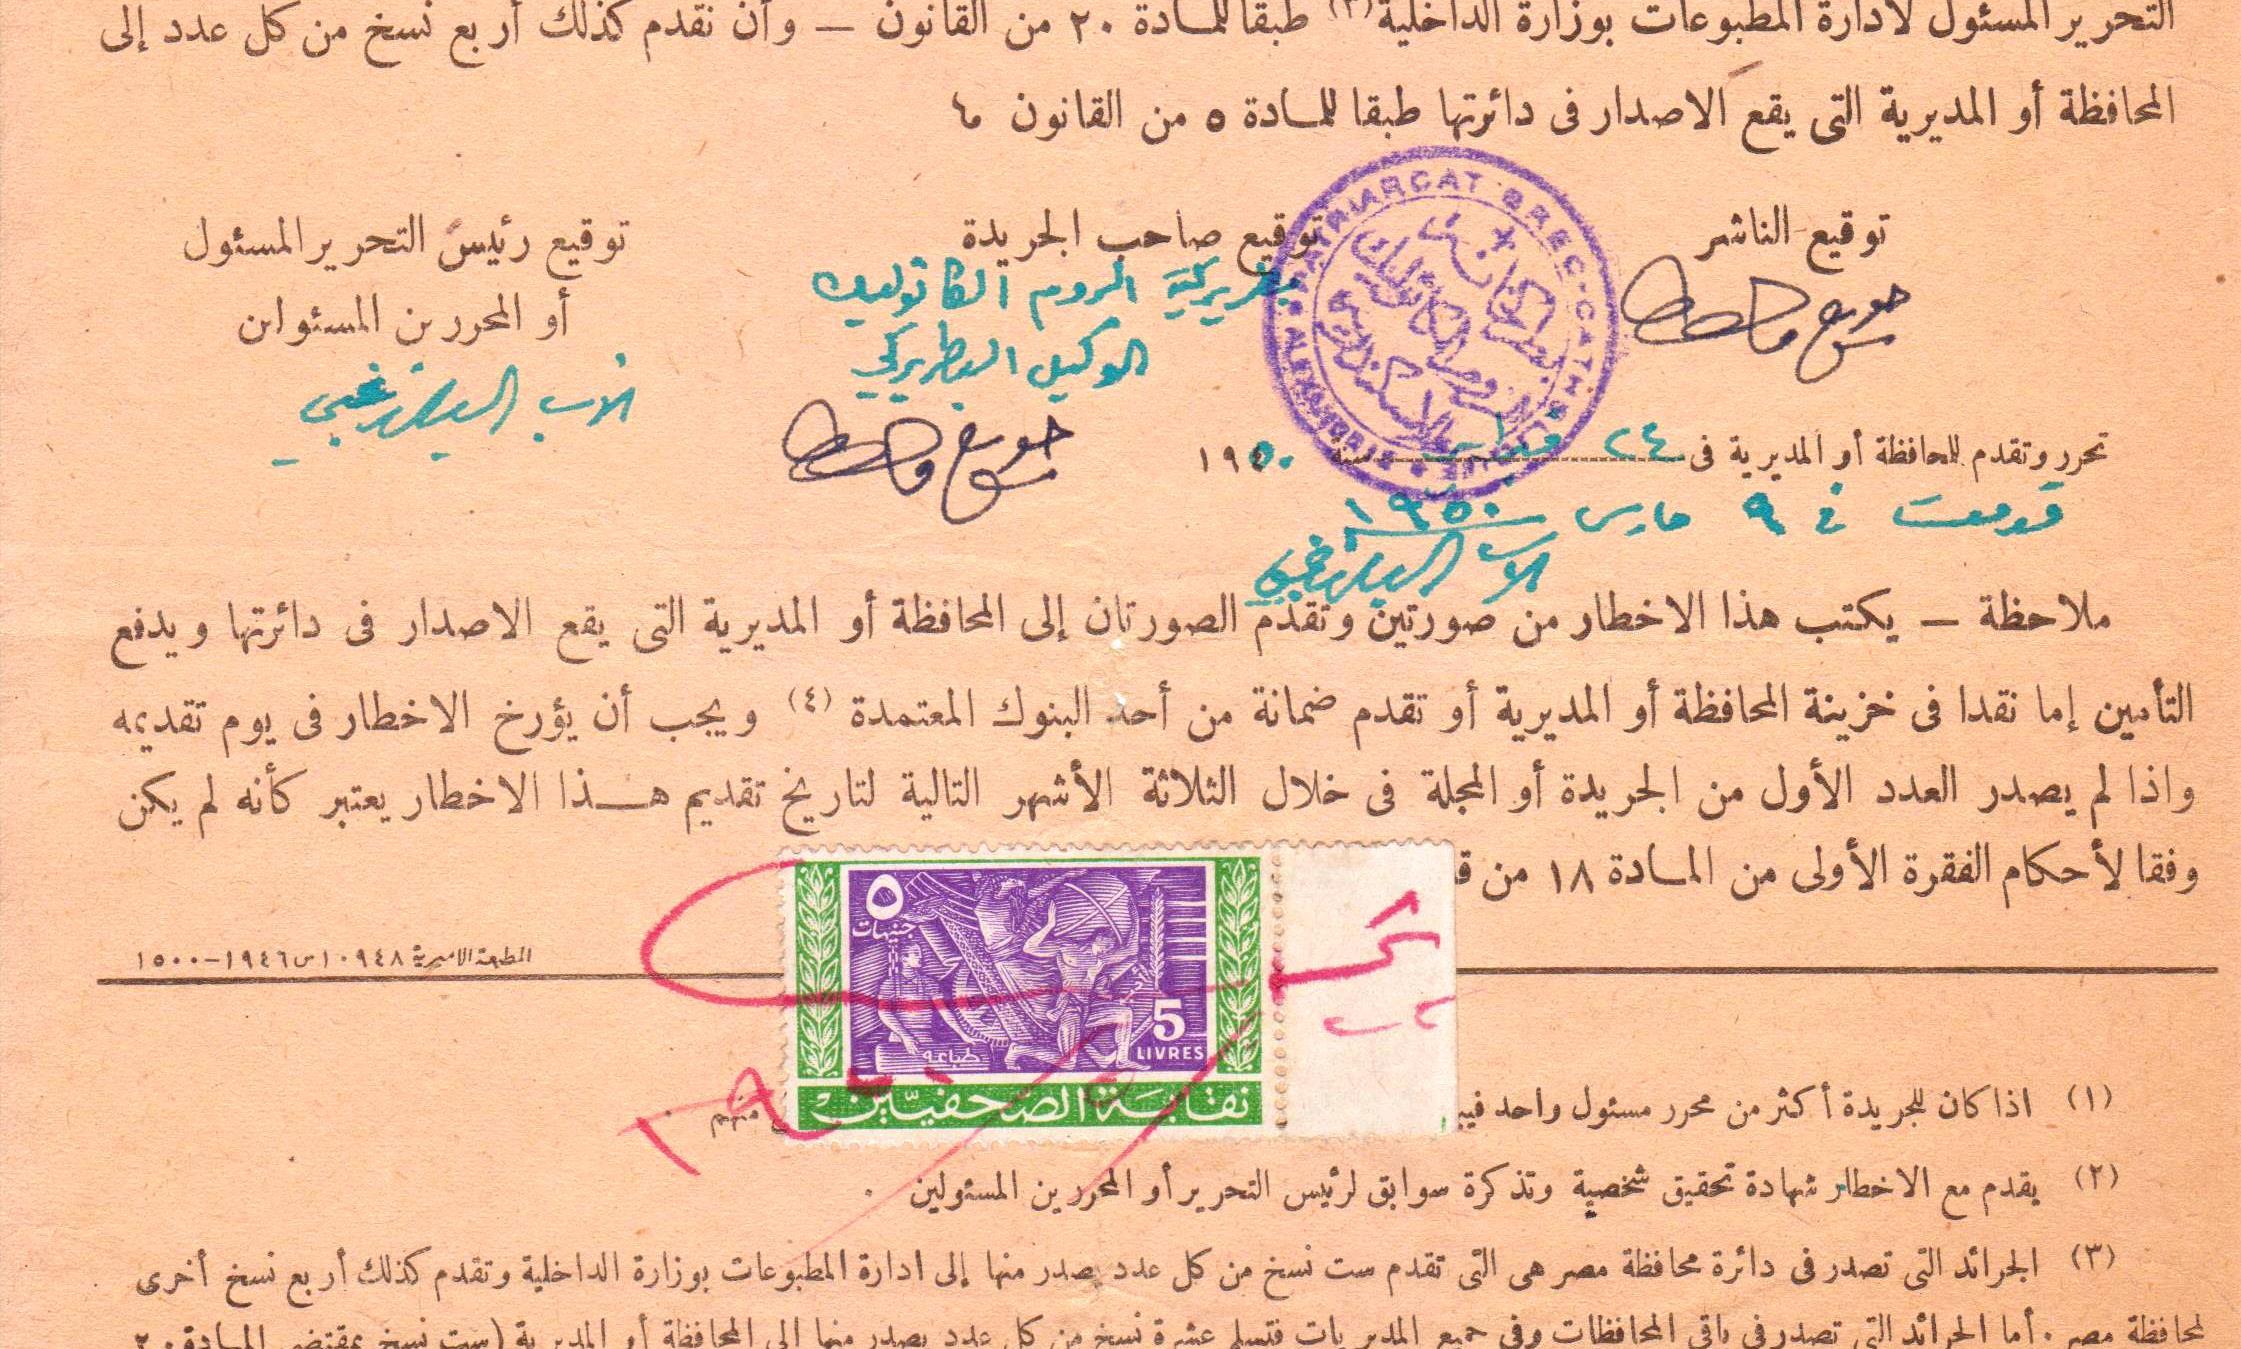 التحرير المسئول لادارة المطبوعات بوزارة الداخلية (٣) طبقا للمادة ٢٠ من القانون — وأن نقدم كذلك أربع نسخ من كل عدد إلى
المحافظة أو المديرية التى يقع الاصدار فى دائرتها طبقا للمادة ٥ من القانون ما
توقيع الناشر
توقيع صاحب الجريدة
توقيع رئيس التحرير المسئول
أو المحررين المسئولين
بطريركية الروم الكاثوليك
الوكيل البطريركى
الأب
PATRIARCAT GREC-CATHOLIQUE
تحرر وتقدم للمحافظة أو المديرية فى ٢٤ فبراير سنة ١٩٥٠
قدمت فى ٩ مارس ١٩٥٠
الأب
ملاحظة — يكتب هذا الاخطار من صورتين وتقدم الصورتان إلى المحافظة أو المديرية التى يقع الاصدار فى دائرتها ويدفع
التأمين إما نقدا فى خزينة المحافظة أو المديرية أو تقدم ضمانة من أحد البنوك المعتمدة (٤) ويجب أن يؤرخ الاخطار فى يوم تقديمه
واذا لم يصدر العدد الأول من الجريدة أو المجلة فى خلال الثلاثة الأشهر التالية لتاريخ تقديم هذا الاخطار يعتبر كأنه لم يكن
وفقا لأحكام الفقرة الأولى من المادة ١٨ من
المطبعة الاميرية ١٠٩٤٨س١٩٤٦–١٥٠٠
٥
جنيهات
5
LIVRES
طباعة
نقابة الصحفيين
(١) اذا كان للجريدة أكثر من محرر مسئول واحد
منهم
(٢) يقدم مع الاخطار شهادة تحقيق شخصية وتذكرة سوابق لرئيس التحرير أو المحررين المسئولين .
(٣) الجرائد التى تصدر فى دائرة محافظة مصر هى التى تقدم ست نسخ من كل عدد يصدر منها إلى ادارة المطبوعات بوزارة الداخلية وتقدم كذلك أربع نسخ أخرى
لمحافظة مصر . أما الجرائد التى تصدر فى باقى المحافظات وفى جميع المديريات فتسلم عشرة نسخ من كل عدد يصدر منها الى المحافظة أو المديرية (ست نسخ بمقتضى المادة ٢٠